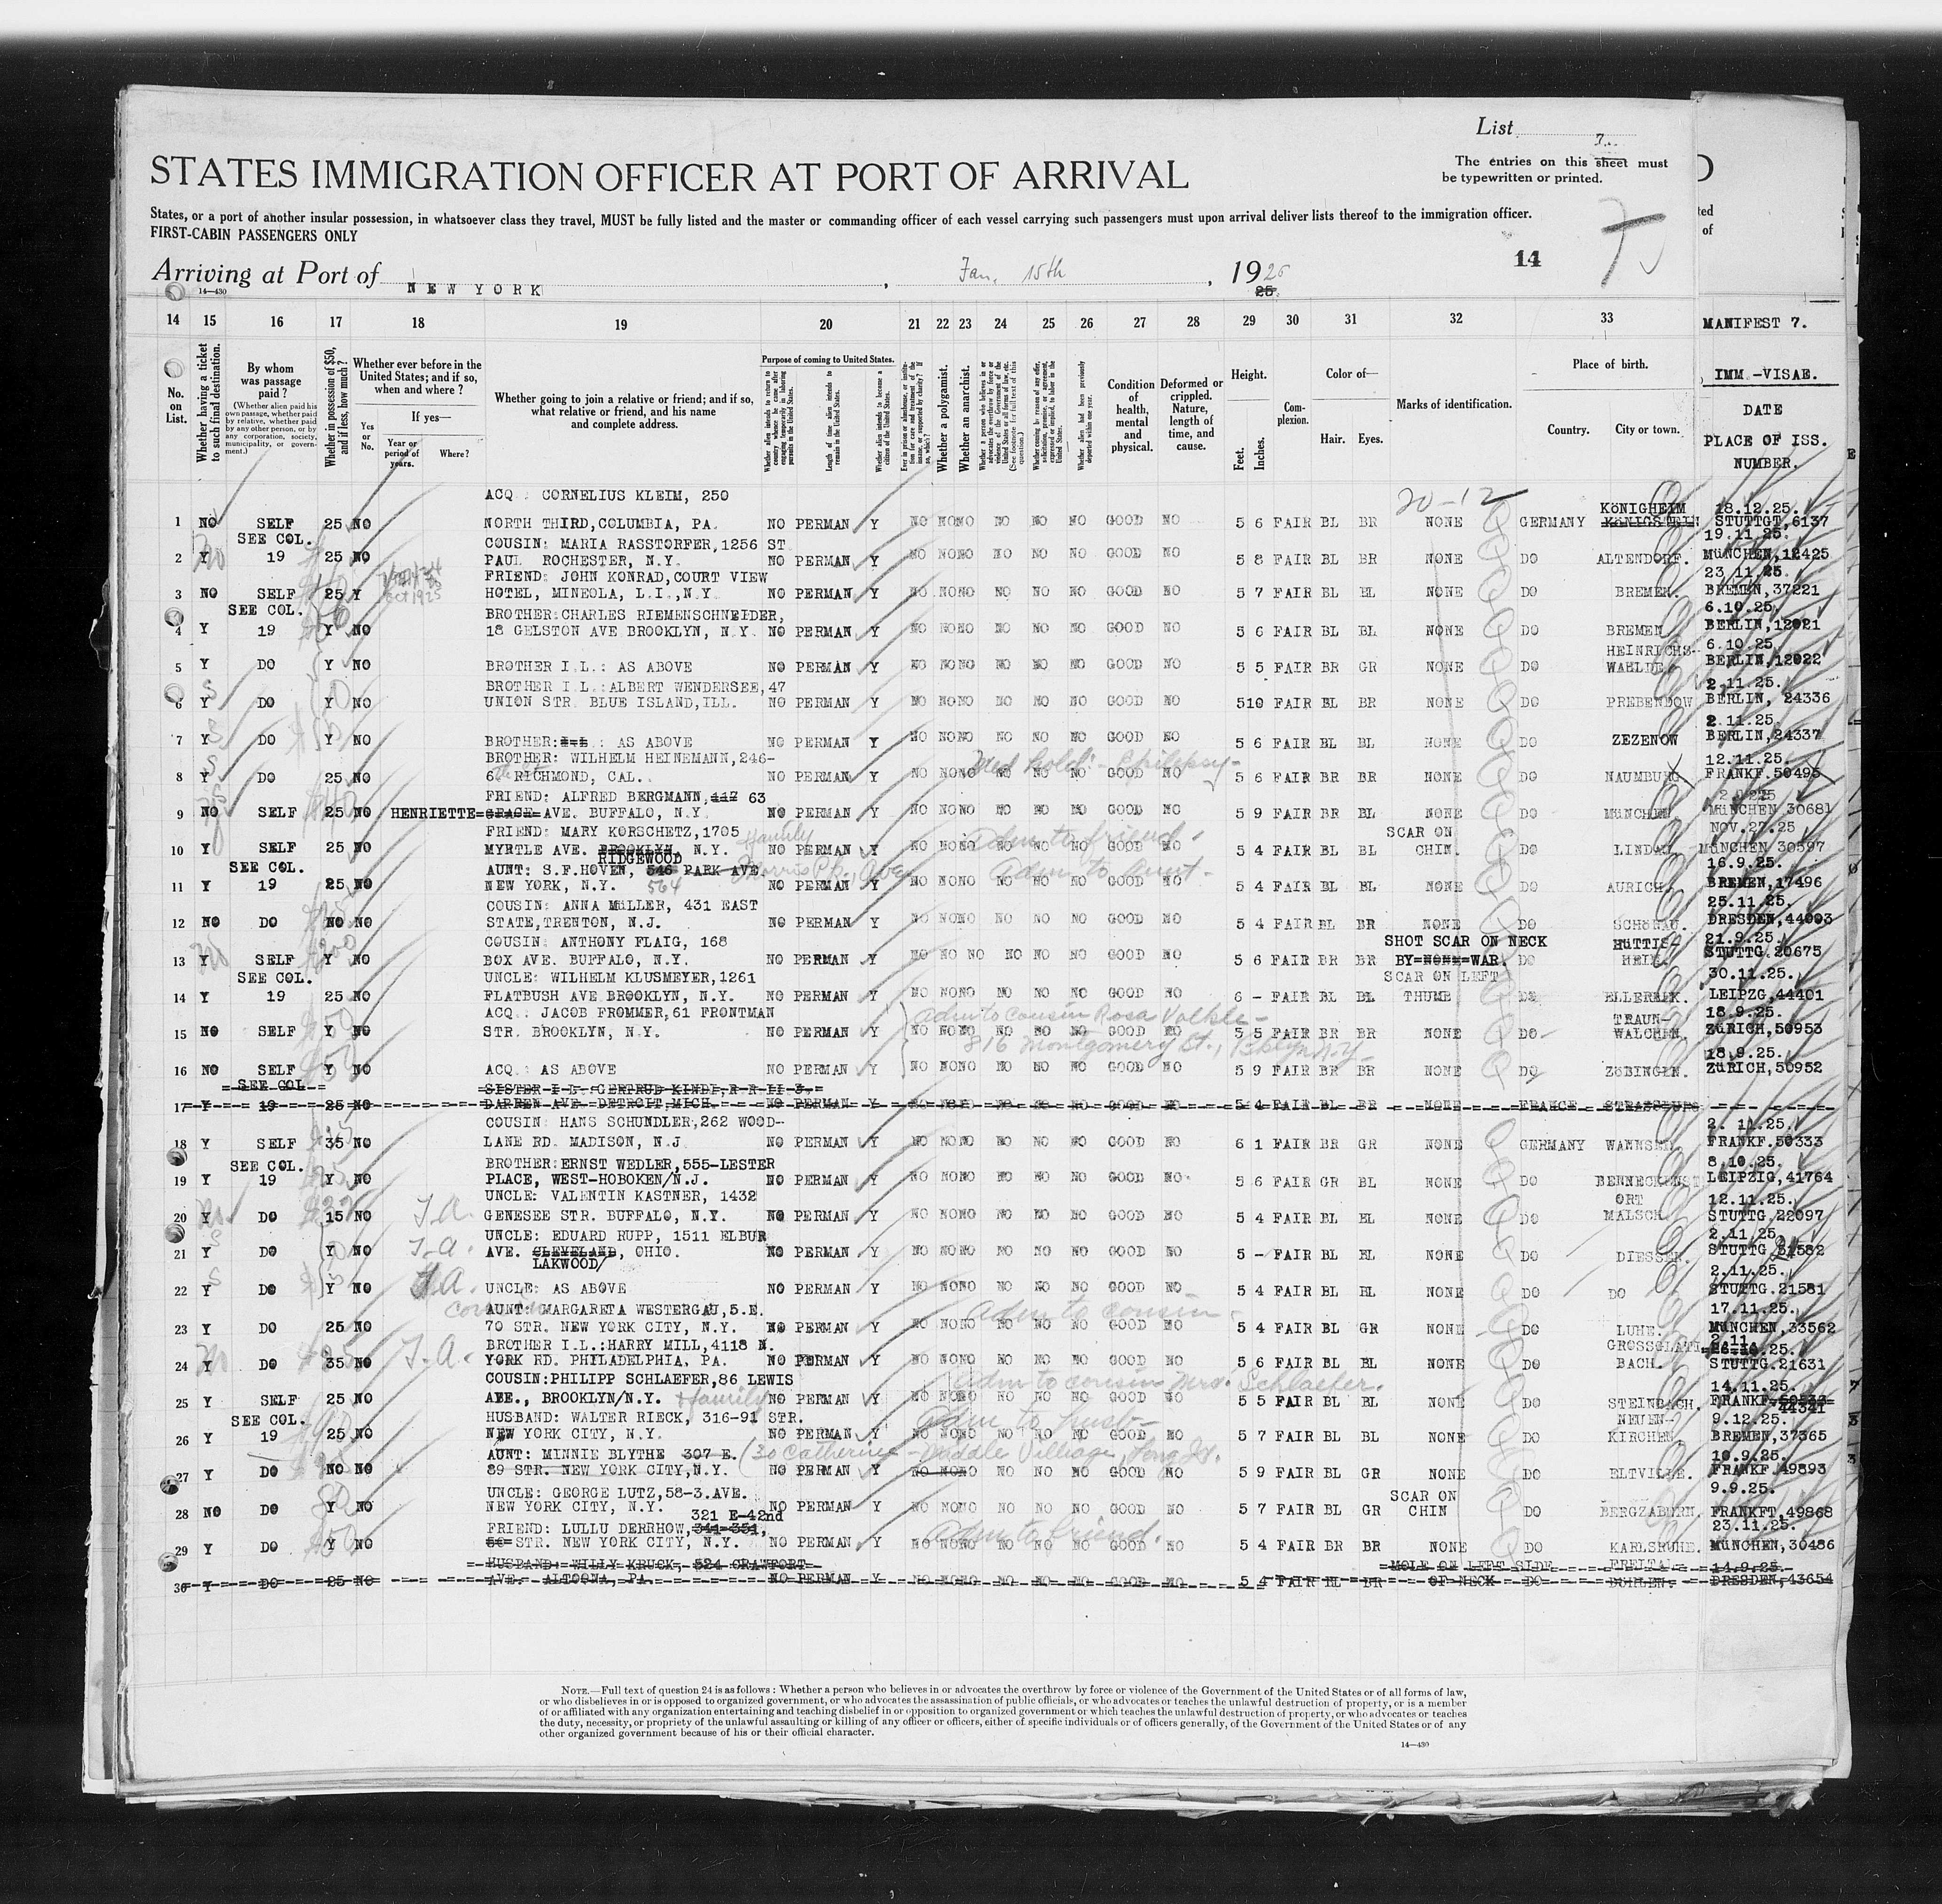 List 7.
The entries on this sheet must
be typewritten or printed.
STATES IMMIGRATION OFFICER AT PORT OF ARRIVAL
States, or a port of another insular possession, in whatsoever class they travel, MUST be fully listed and the master or commanding officer of each vessel carrying such passengers must upon arrival deliver lists thereof to the immigration officer.
FIRST-CABIN PASSENGERS ONLY
14
Arriving at Port of NEW YORK, Jan. 15th, 19 26
25.
14—430
14 15 16 17 18 19 20 21 22 23 24 25 26 27 28 29 30 31 32 33
MANIFEST 7.
IMM.-VISAE.
DATE
PLACE OF ISS.
NUMBER.
No. on List.
Whether having a ticket to such final destination.
By whom was passage paid?
(Whether alien paid his own passage, whether paid by relative, whether paid by any other person, or by any corporation, society, municipality, or government.)
Whether in possession of $50, and if less, how much?
Whether ever before in the United States; and if so, when and where?
Yes or No.
If yes—
Year or period of years.
Where?
Whether going to join a relative or friend; and if so, what relative or friend, and his name and complete address.
Purpose of coming to United States.
Whether alien intends to return to country whence he came after engaging temporarily in laboring pursuits in the United States.
Length of time alien intends to remain in the United States.
Whether alien intends to become a citizen of the United States.
Whether a polygamist.
Whether an anarchist.
Condition of health, mental and physical.
Deformed or crippled. Nature, length of time, and cause.
Height.
Feet.
Inches.
Complexion.
Color of—
Hair.
Eyes.
Marks of identification.
Place of birth.
Country.
City or town.
20-12
ACQ.: CORNELIUS KLEIM, 250 KöNIGHEIM 18.12.25.
1 NO SELF 25 NO NORTH THIRD,COLUMBIA, PA. NO PERMAN Y NO NO NO NO NO NO GOOD NO 5 6 FAIR BL BR NONE GERMANY KöNIGSTEIN STUTTGT,6137
SEE COL. COUSIN: MARIA RASSTORFER,1256 ST 19.11.25.
2 Y 19 25 NO PAUL ROCHESTER, N.Y. NO PERMAN Y NO NO NO NO NO NO GOOD NO 5 8 FAIR BL BR NONE DO ALTENDORF. MüNCHEN,12425
FRIEND: JOHN KONRAD,COURT VIEW 23.11.25.
3 NO SELF 25 Y Oct 1925 HOTEL, MINEOLA, L.I.,N.Y. NO PERMAN Y NO NO NO NO NO NO GOOD NO 5 7 FAIR BL BL NONE DO BREMEN. BREMEN,37221
SEE COL. BROTHER:CHARLES RIEMENSCHNEIDER, 6.10.25.
4 Y 19 Y NO 18 GELSTON AVE BROOKLYN, N.Y. NO PERMAN Y NO NO NO NO NO NO GOOD NO 5 6 FAIR BL BL NONE DO BREMEN BERLIN,12021
HEINRICHS- 6.10.25.
5 Y DO Y NO BROTHER I.L.: AS ABOVE NO PERMAN Y NO NO NO NO NO NO GOOD NO 5 5 FAIR BR GR NONE DO WAHLDE. BERLIN,12022
BROTHER I.L.:ALBERT WENDERSEE,47 2.11.25.
6 Y DO Y NO UNION STR. BLUE ISLAND,ILL. NO PERMAN Y NO NO NO NO NO NO GOOD NO 5 10 FAIR BL BR NONE DO PREBENDOW BERLIN, 24336
2.11.25.
7 Y DO Y NO BROTHER: : AS ABOVE NO PERMAN Y NO NO NO NO NO NO GOOD NO 5 6 FAIR BL BL NONE DO ZEZENOW BERLIN,24337
BROTHER: WILHELM HEINEMANN,246- Med hold - Epilepsy- 12.11.25.
8 Y DO 25 NO 6 RICHMOND, CAL. NO PERMAN Y NO NO NO NO NO NO GOOD NO 5 6 FAIR BR BR NONE DO NAUMBURG FRANKF.50495
FRIEND: ALFRED BERGMANN, 63
9 NO SELF 25 NO HENRIETTE AVE. BUFFALO, N.Y. NO PERMAN Y NO NO NO NO NO NO GOOD NO 5 9 FAIR BR BL NONE DO MüNCHEN MüNCHEN 30681
FRIEND: MARY KORSCHETZ,1705 family adm to friend. SCAR ON NOV.27.25
10 Y SELF 25 NO MYRTLE AVE. BROOKLYN, N.Y. NO PERMAN Y NO NO NO NO NO NO GOOD NO 5 4 FAIR BL BL CHIN. DO LINDAU MüNCHEN 30597
RIDGEWOOD
SEE COL. AUNT: S.F.HOVEN, 546 PARK AVE Morris Pk. Ave adm to aunt. 16.9.25.
11 Y 19 25 NO NEW YORK, N.Y. 564 NO PERMAN Y NO NO NO NO NO NO GOOD NO 5 4 FAIR BL BL NONE DO AURICH. BREMEN,17496
COUSIN: ANNA MüLLER, 431 EAST 25.11.25.
12 NO DO NO NO STATE,TRENTON, N.J. NO PERMAN Y NO NO NO NO NO NO GOOD NO 5 4 FAIR BL BR NONE DO SCHöNAU. DRESDEN,44003
COUSIN: ANTHONY FLAIG, 168 SHOT SCAR ON NECK HüTTIS- 21.9.25.
13 Y SELF Y NO BOX AVE. BUFFALO, N.Y. NO PERMAN Y NO NO NO NO NO NO GOOD NO 5 6 FAIR BR BR BY=NONE=WAR. DO HEIM. STUTTG.20675
SEE COL. UNCLE: WILHELM KLUSMEYER,1261 SCAR ON LEFT 30.11.25.
14 Y 19 25 NO FLATBUSH AVE BROOKLYN, N.Y. NO PERMAN Y NO NO NO NO NO NO GOOD NO 6 - FAIR BL BL THUMB DO ELLERBEK. LEIPZG,44401
ACQ.: JACOB FROMMER,61 FRONTMAN adm to cousin Rosa Volkle- TRAUN- 18.9.25.
15 NO SELF Y NO STR. BROOKLYN, N.Y. NO PERMAN Y NO NO NO NO NO NO GOOD NO 5 5 FAIR BR BR NONE DO WALCHEN. ZüRICH,50953
816 Montgomery St., Bklyn N.Y. 18.9.25.
16 NO SELF Y NO ACQ.: AS ABOVE NO PERMAN Y NO NO NO NO NO NO GOOD NO 5 9 FAIR BR BR NONE DO ZöBINGEN. ZüRICH,50952
SEE COL SISTER I L: GERTRUD KINDI,R R II 3.
17 Y 19 25 NO DARREN AVE DETROIT,MICH. NO PERMAN Y NO NO NO NO NO NO GOOD NO 5 4 FAIR BL BR NONE FRANCE STRASSBURG
COUSIN: HANS SCHUNDLER,262 WOOD- 2. 11.25.
18 Y SELF 35 NO LANE RD. MADISON, N.J NO PERMAN Y NO NO NO NO NO NO GOOD NO 6 1 FAIR BR GR NONE GERMANY WANNSEE. FRANKF.50333
SEE COL. BROTHER:ERNST WEDLER,555-LESTER 8.10.25.
19 Y 19 Y NO PLACE, WEST-HOBOKEN/N.J. NO PERMAN Y NO NO NO NO NO NO GOOD NO 5 6 FAIR GR BL NONE DO BENNECKENST LEIPZIG,41764
UNCLE: VALENTIN KASTNER, 1432 ORT 12.11.25.
20 Y DO 15 NO GENESEE STR. BUFFALO, N.Y. NO PERMAN Y NO NO NO NO NO NO GOOD NO 5 4 FAIR BL BL NONE DO MALSCH. STUTTG.22097
UNCLE: EDUARD RUPP, 1511 ELBUR 2.11.25.
21 Y DO Y NO AVE. CLEVELAND, OHIO. NO PERMAN Y NO NO NO NO NO NO GOOD NO 5 - FAIR BL BL NONE DO DIESSEN. STUTTG 21582
LAKWOOD/ 2.11.25.
22 Y DO Y NO UNCLE: AS ABOVE NO PERMAN Y NO NO NO NO NO NO GOOD NO 5 4 FAIR BL BL NONE DO DO STUTTG.21581
cousin AUNT: MARGARETA WESTERGAU,5.E. adm to cousin 17.11.25.
23 Y DO 25 NO 70 STR. NEW YORK CITY, N.Y. NO PERMAN Y NO NO NO NO NO NO GOOD NO 5 4 FAIR BL GR NONE DO LUHE. MüNCHEN,33562
BROTHER I.L.:HARRY MILL,4118 N. GROSSGLATT- 2.11.25.
24 Y DO 35 NO YORK RD. PHILADELPHIA, PA. NO PERMAN Y NO NO NO NO NO NO GOOD NO 5 6 FAIR BL BL NONE DO BACH. STUTTG.21631
COUSIN:PHILIPP SCHLAEFER,86 LEWIS adm to cousin Mrs. Schlaefer. 14.11.25.
25 Y SELF 25 NO AVE., BROOKLYN/N.Y. family NO PERMAN Y NO NO NO NO NO NO GOOD NO 5 5 FAIR BL BL NONE DO STEINBACH. FRANKF. 44341
SEE COL. HUSBAND: WALTER RIECK, 316-91 STR. adm to husb- NEUEN- 9.12.25.
26 Y 19 25 NO NEW YORK CITY, N.Y. NO PERMAN Y NO NO NO NO NO NO GOOD NO 5 7 FAIR BL BL NONE DO KIRCHEN. BREMEN,37365
AUNT: MINNIE BLYTHE 307 E. (30 Catherine - Middle Village, Long Is. 10.9.25.
27 Y DO NO NO 89 STR. NEW YORK CITY,N.Y. NO PERMAN Y NO NO NO NO NO NO GOOD NO 5 9 FAIR BL GR NONE DO ELTVILLE. FRANKF.49893
UNCLE: GEORGE LUTZ,58-3.AVE. SCAR ON 9.9.25.
28 NO DO Y NO NEW YORK CITY, N.Y. NO PERMAN Y NO NO NO NO NO NO GOOD NO 5 7 FAIR BL GR CHIN DO BERGZABERN. FRANKFT,49868
321 E-42nd
FRIEND: LULLU DERRHOW,341-351, adm to friend. 23.11.25.
29 Y DO Y NO STR. NEW YORK CITY, N.Y. NO PERMAN Y NO NO NO NO NO NO GOOD NO 5 4 FAIR BR BR NONE DO KARLSRUHE. MüNCHEN,30486
HUSBAND: WILLY KRUCK, 524 CRAWFORT MOLE ON LEFT SIDE FREITAL- 14.9.25.
30 Y DO 25 NO AVE. ALTOONA, PA. NO PERMAN Y NO NO NO NO NO NO GOOD NO 5 4 FAIR BL BR OF NECK DO DöHLEN. DRESDEN,43654
NOTE.—Full text of question 24 is as follows: Whether a person who believes in or advocates the overthrow by force or violence of the Government of the United States or of all forms of law,
or who disbelieves in or is opposed to organized government, or who advocates the assassination of public officials, or who advocates or teaches the unlawful destruction of property, or is a member
of or affiliated with any organization entertaining and teaching disbelief in or opposition to organized government or which teaches the unlawful destruction of property, or who advocates or teaches
the duty, necessity, or propriety of the unlawful assaulting or killing of any officer or officers, either of specific individuals or of officers generally, of the Government of the United States or of any
other organized government because of his or their official character.
14—430